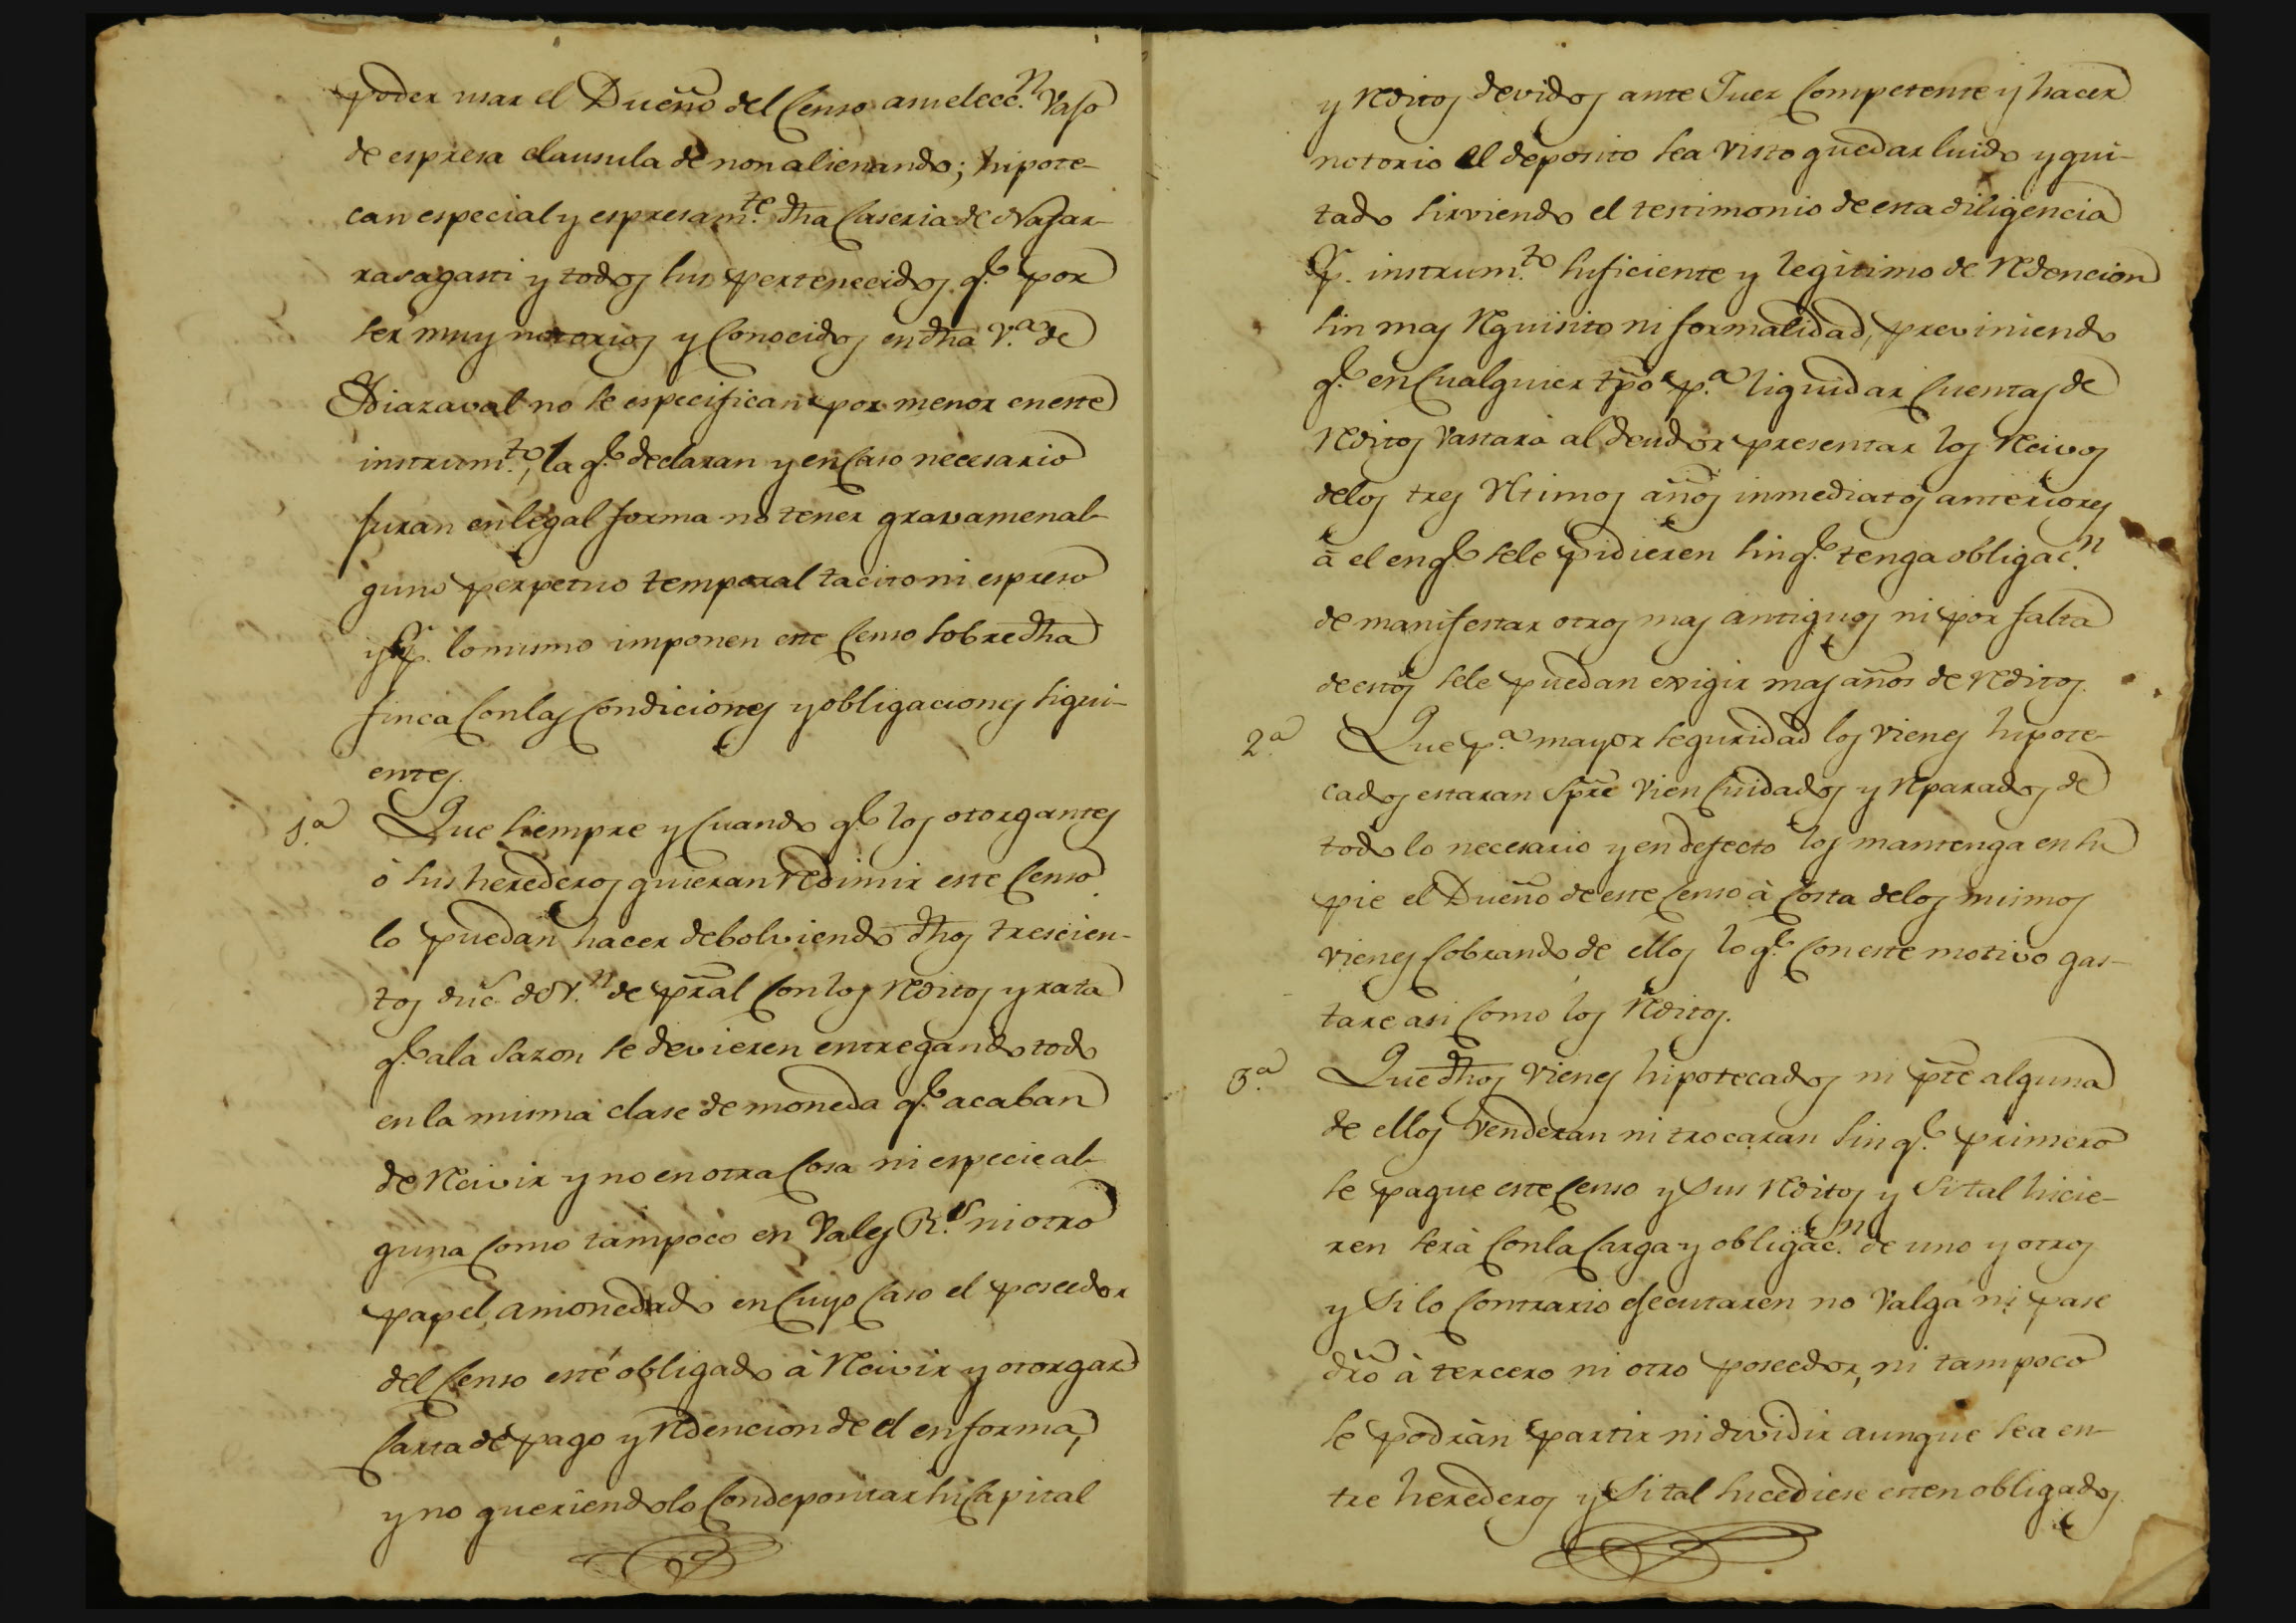 poder usar el Dueño del Censo asu elecc.n Vajo
de espresa clausula de non alienando; hipote-
can especial y espresam.te dha Caseria de Nafar-
rasagasti y todos sus pertenecidos q.e por
ser muy notorios y Conocidos en dha V.a de
Ydiazaval no se especifican por menor eneste
instrum.to, la q.e declaran y en Caso necesario
juran enlegal forma no tener gravamen al-
guno perpetuo temporal tacito ni espreso
y p.r lo mismo imponen este Censo sobre dha
finca Conlas Condiciones y obligaciones sigui-
entes.
1.a Que siempre y Cuando q.e los otorgantes
ò sus herederos quieran redimir este Censo
lo puedan hacer debolviendo dhos trescien-
tos duc.s de v.n de pral Con los reditos y rata
q.e ala Sazon se devieren entregando todo
en la misma clase de moneda q.e acaban
de recivir y no en otra Cosa ni especie al-
guna Como tampoco en Vales R.s ni otro
papel amonedado en Cuyo Caso el poseedor
del Censo esté obligado à recivir y otorgar
Carta de pago y redencion de el en forma,
y no queriendolo Con depositar su Capital
y reditos devidos ante Juez Competente y hacer
notorio el deposito sea visto quedar luido y qui-
tado sirviendo el testimonio de esta diligencia
p.r instrum.to suficiente y legitimo de redencion
sin mas requisito ni formalidad, previniendo
q.e en Cualquier tpo p.a liquidar Cuentas de
reditos vastarà al deudor presentar los recivos
delos tres ultimos años inmediatos anteriores
à el en q.e sele pidieren sin q.e tenga obligac.n
de manifestar otros mas antiguos ni por falta
de estos sele puedan exigir mas años de reditos.
2.a Que p.a mayor seguridad los vienes hipote-
cados estaran Spre vien Cuidados y reparados de
todo lo necesario y en defecto los mantenga en su
pie el Dueño de este Censo à Costa delos mismos
vienes Cobrando de ellos lo q.e Con este motivo gas-
tare asi Como los reditos.
3.a Que dhos vienes hipotecados ni pte alguna
de ellos venderan ni trocaran sin q.e primero
se pague este Censo y sus reditos y Si tal hicie-
ren serà Con la Carga y obligac.n de uno y otros
y Si lo Contrario ejecutaren no valga ni pase
dro à tercero ni otro poseedor, ni tampoco
se podràn partir ni dividir aunque sea en-
tre herederos y Si tal sucediese esten obligados